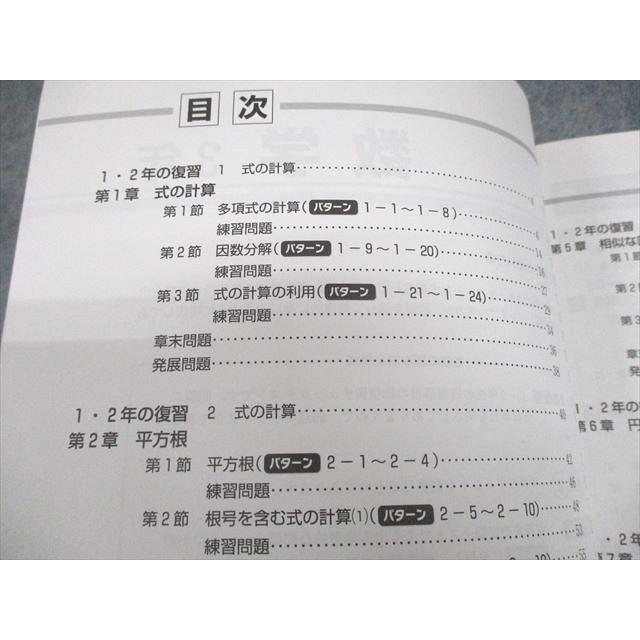 目次
1・2年の復習 1 式の計算
第1章 式の計算
第1節 多項式の計算(パターン 1－1～1－8)
練習問題
第2節 因数分解(パターン 1－9～1－20)
練習問題
第3節 式の計算の利用(パターン 1－21～1－24)
練習問題
章末問題 36
発展問題 38
1・2年の復習 2 式の計算 40
第2章 平方根
第1節 平方根(パターン 2－1～2－4) 42
練習問題 46
第2節 根号を含む式の計算(1)(パターン 2－5～2－10) 48
練習問題 53
55
1・2年の復習
第5章 相似な
第1節
第2
第3
章
発
1・2年の
第6章 円
・2年
第7章